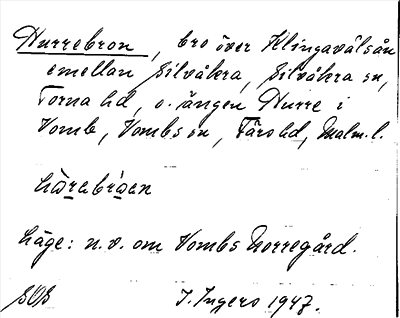 Hurrebron, bro över Klingavälsån
emellan Silvåkra, Silvåkra sn,
Torna hd, o. ängen Hurre i
Vomb, Vombs sn, Färs hd, Malm. l.
Läge: n.v. om Vombs Norregård.
I. Ingers 1947.